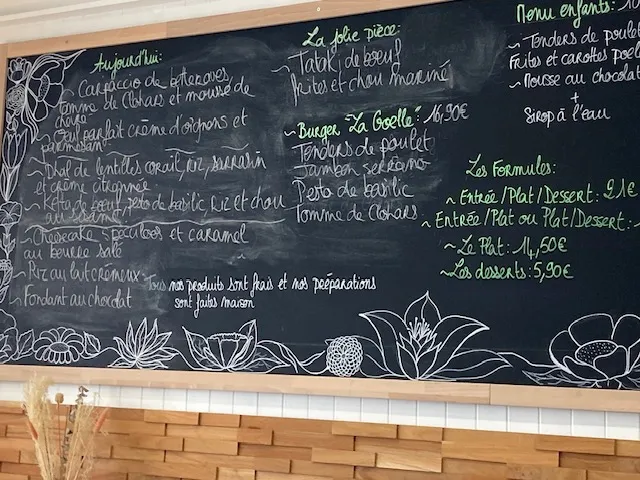 Aujourd'hui:
~ Carpaccio de betteraves
Tomme de Clohars et mousse de
chèvre
~ Oeuf parfait crème d'oignons et
parmesan
~ Dhal de lentilles corail, riz, sarrasin
et crème citronnée
~ Kefta de boeuf, pesto de basilic, riz et chou
au sésame
~ Cheesecake spéculoos et caramel
au beurre salé
~ Riz au lait crémeux
~ Fondant au chocolat
Tous nos produits sont frais et nos préparations
sont faites maison
La jolie pièce:
~ Tataki de boeuf
frites et chou mariné
~ Burger "La Goelle": 16,90€
Tenders de poulet
Jambon serrano
Pesto de basilic
Tomme de Clohars
Menu enfants:
~ Tenders de poulet
Frites et carottes
~ Mousse au chocolat
+
Sirop à l'eau
Les Formules:
~ Entrée/Plat/Dessert: 21€
~ Entrée/Plat ou Plat/Dessert:
~ Le Plat: 14,50€
~ Les desserts: 5,90€